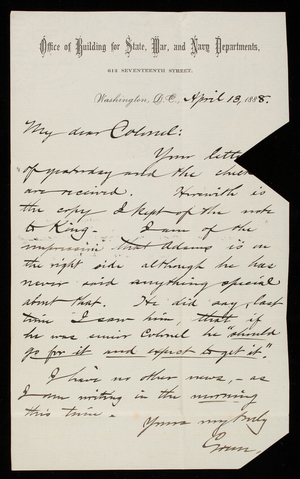 Office of Building for State, War, and Navy Departments,
612 SEVENTEENTH STREET.
Washington, D.C., April 13, 1888.
My dear Colonel:
Your lette
of yesterday and the chec
are received. Herewith is
the copy I kept of the note
to King. I am of the
impression that Adams is on
the right side although he has
never said anything special
about that. He did say, last
time I saw him, that if
he was senior Colonel he "should
go for it and expect to get it".
I have no other news, - as
I am writing in the morning
this time.
Yours very truly